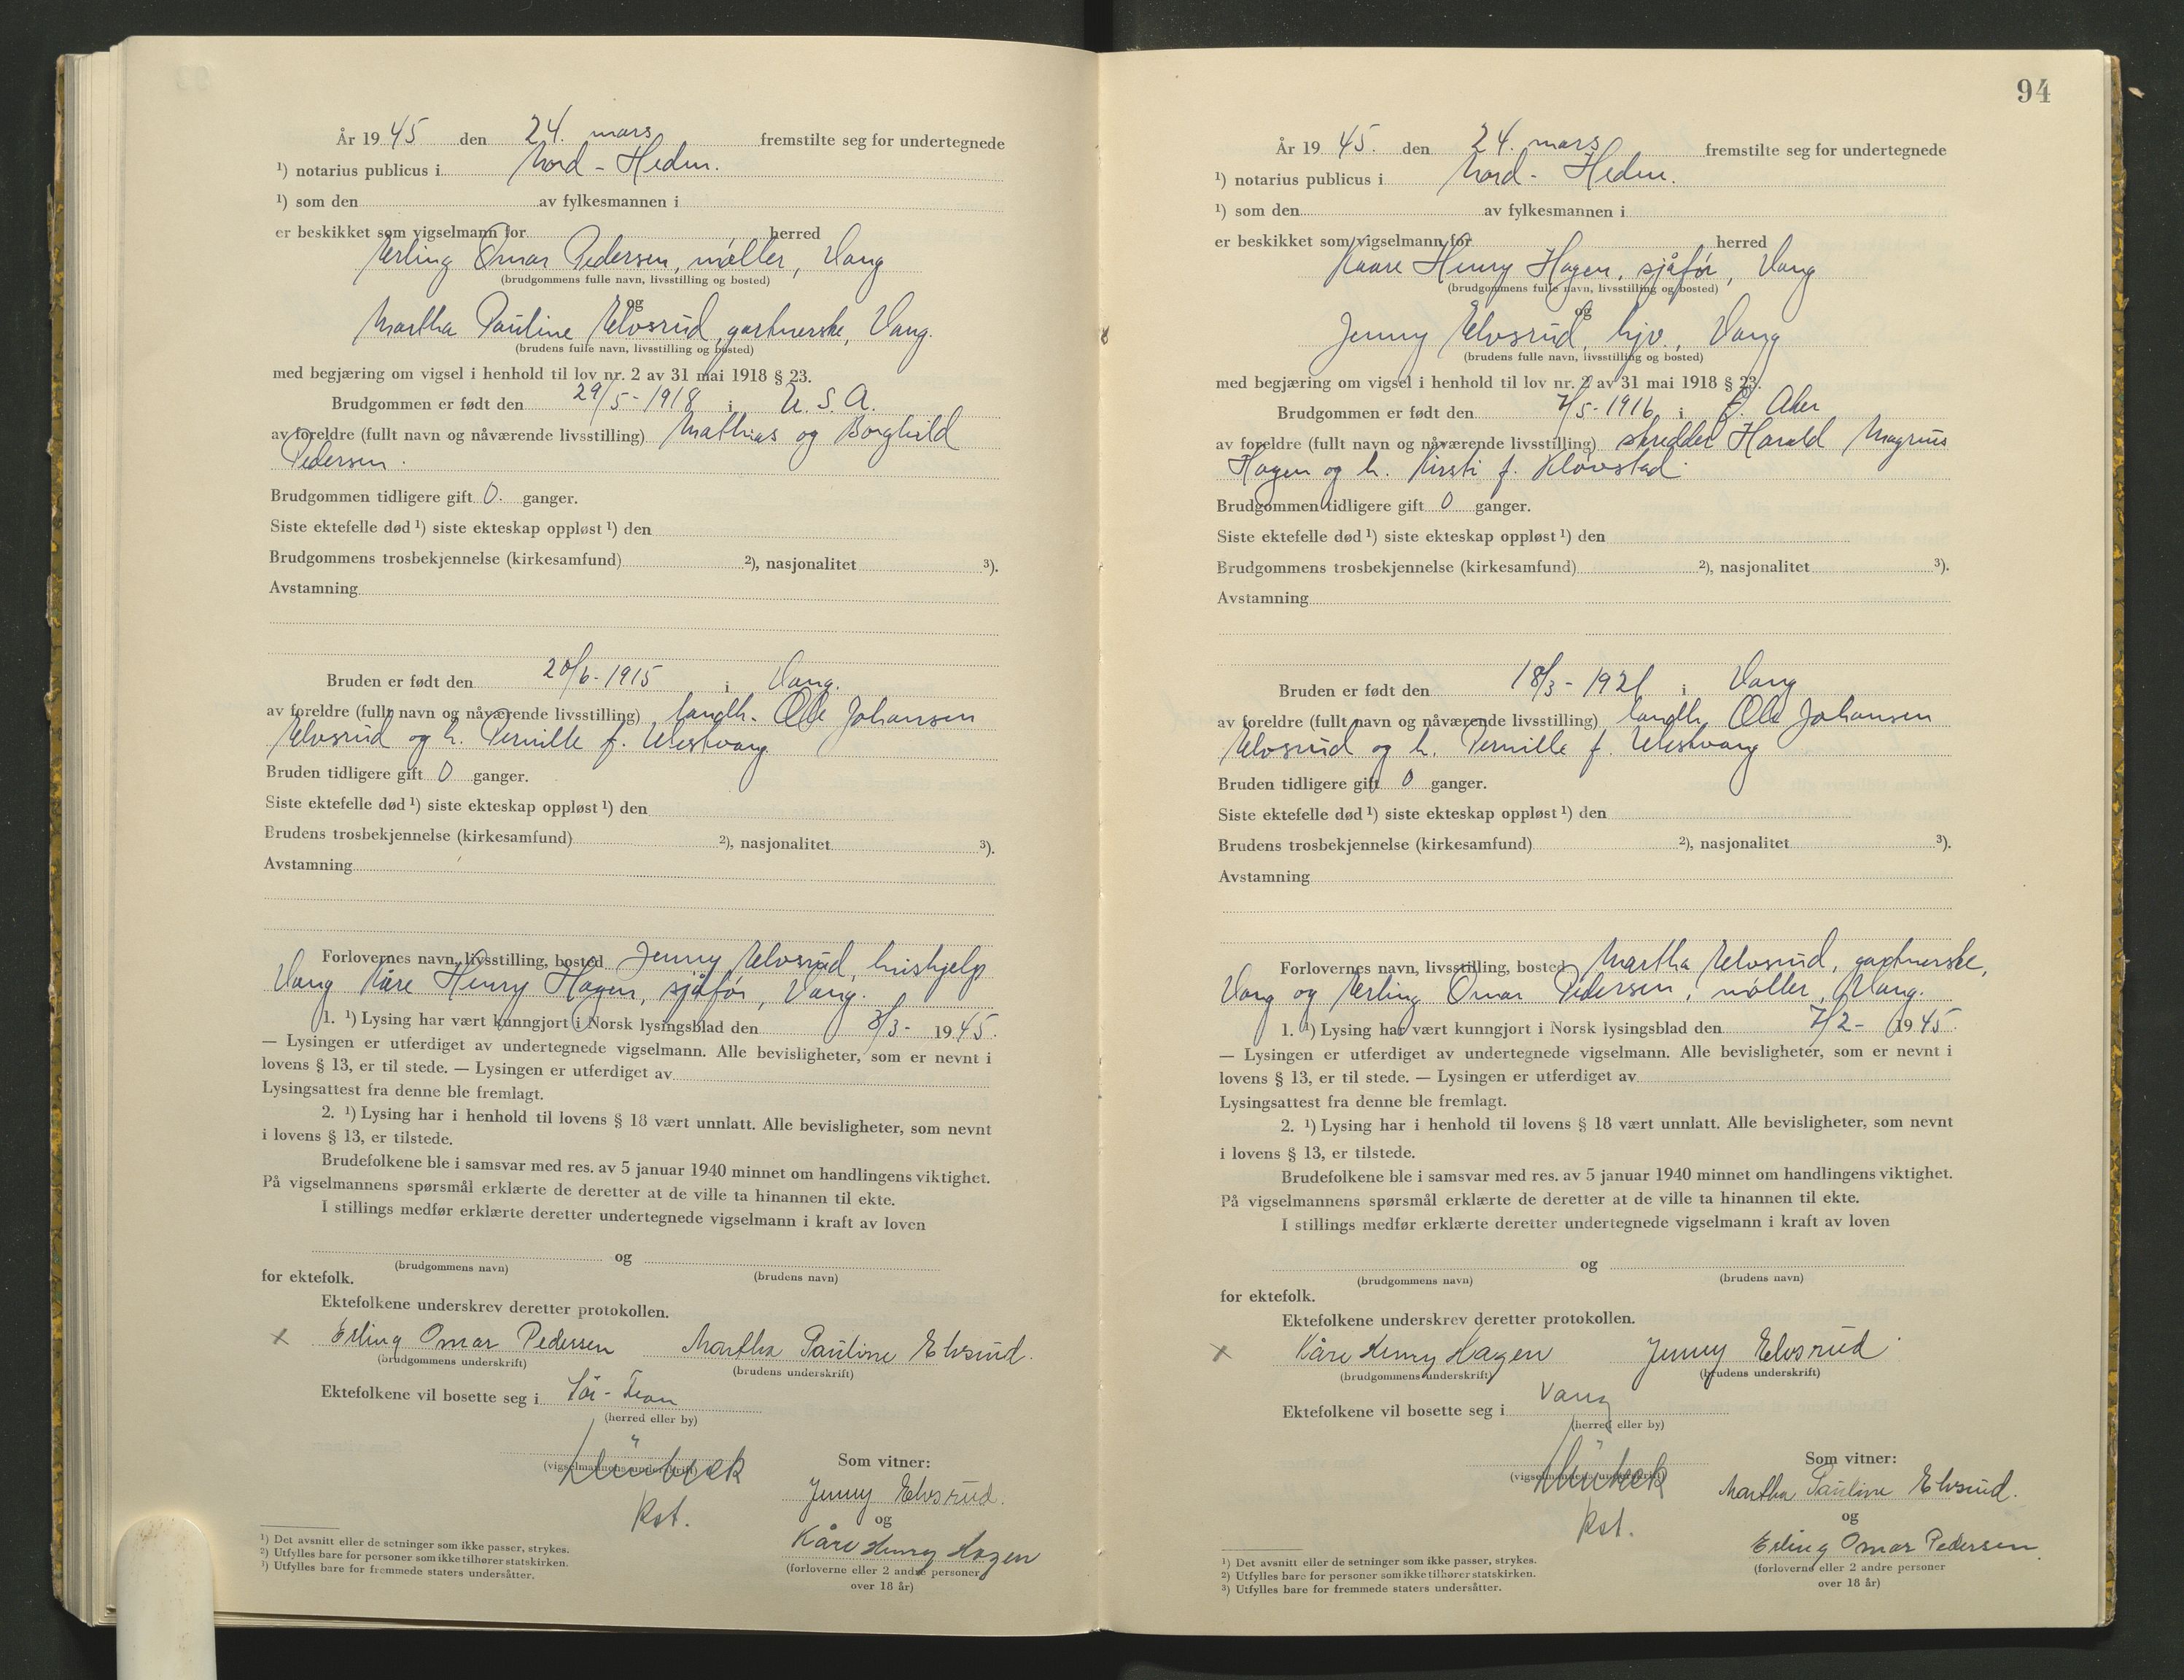 År 1945 den 24. mars fremstilte seg for undertegnede
¹) notarius publicus i Nord-Hedm.
¹) som den av fylkesmannen i
er beskikket som vigselmann for herred
Erling Omar Pedersen, møller, Vang
(brudgommens fulle navn, livsstilling og bosted)
og
Martha Pauline Elvsrud, gartnerske, Vang.
(brudens fulle navn, livsstilling og bosted)
med begjæring om vigsel i henhold til lov nr. 2 av 31 mai 1918 § 23.
Brudgommen er født den 29/5-1918 i U.S.A.
av foreldre (fullt navn og nåværende livsstilling) Mathias og Borghild
Pedersen.
Brudgommen tidligere gift 0. ganger.
Siste ektefelle død ¹) siste ekteskap oppløst ¹) den
Brudgommens trosbekjennelse (kirkesamfund) ²), nasjonalitet ³).
Avstamning
Bruden er født den 20/6-1915 i Vang.
av foreldre (fullt navn og nåværende livsstilling) landh. Ole Johansen
Elvsrud og h. Pernille f. Westvang
Bruden tidligere gift 0 ganger.
Siste ektefelle død ¹) siste ekteskap oppløst ¹) den
Brudens trosbekjennelse (kirkesamfund) ²), nasjonalitet ³).
Avstamning
Forlovernes navn, livsstilling, bosted Jenny Elvsrud, hushjelp
Vang Kåre Henry Hagen, sjåfør, Vang.
1. ¹) Lysing har vært kunngjort i Norsk lysingsblad den 3/3- 1945.
— Lysingen er utferdiget av undertegnede vigselmann. Alle bevisligheter, som er nevnt i
lovens § 13, er til stede. — Lysingen er utferdiget av
Lysingsattest fra denne ble fremlagt.
2. ¹) Lysing har i henhold til lovens § 18 vært unnlatt. Alle bevisligheter, som nevnt
i lovens § 13, er tilstede.
Brudefolkene ble i samsvar med res. av 5 januar 1940 minnet om handlingens viktighet.
På vigselmannens spørsmål erklærte de deretter at de ville ta hinannen til ekte.
I stillings medfør erklærte deretter undertegnede vigselmann i kraft av loven
og
(brudgommens navn) (brudens navn)
for ektefolk.
Ektefolkene underskrev deretter protokollen.
x Erling Omar Pedersen Martha Pauline Elvsrud.
(brudgommens underskrift) (brudens underskrift)
Ektefolkene vil bosette seg i Sør-Fron
(herred eller by)
(vigselmannens underskrift)
Som vitner:
Jenny Elvsrud.
og
Kåre Henry Hagen
(forloverne eller 2 andre personer
over 18 år)
¹) Det avsnitt eller de setninger som ikke passer, strykes.
²) Utfylles bare for personer som ikke tilhører statskirken.
³) Utfylles bare for fremmede staters undersåtter.
94
År 1945. den 24. mars fremstilte seg for undertegnede
¹) notarius publicus i Nord-Hedm.
¹) som den av fylkesmannen i
er beskikket som vigselmann for herred
Kaare Henry Hagen, sjåfør, Vang
(brudgommens fulle navn, livsstilling og bosted)
og
Jenny Elvsrud, hjv., Vang
(brudens fulle navn, livsstilling og bosted)
med begjæring om vigsel i henhold til lov nr. 2 av 31 mai 1918 § 23.
Brudgommen er født den 7/5-1916 i Ø. Aker
av foreldre (fullt navn og nåværende livsstilling) skredder Harald Magnus
Hagen og h. Kirsti f. Kløvstad.
Brudgommen tidligere gift 0 ganger.
Siste ektefelle død ¹) siste ekteskap oppløst ¹) den
Brudgommens trosbekjennelse (kirkesamfund) ²), nasjonalitet ³).
Avstamning
Bruden er født den 18/3-1921 i Vang
av foreldre (fullt navn og nåværende livsstilling) landh. Ole Johansen
Elvsrud og h. Pernille f. Westvang
Bruden tidligere gift 0 ganger.
Siste ektefelle død ¹) siste ekteskap oppløst ¹) den
Brudens trosbekjennelse (kirkesamfund) ²), nasjonalitet ³).
Avstamning
Forlovernes navn, livsstilling, bosted Martha Elvsrud, gartnerske,
Vang og Erling Omar Pedersen, møller, Vang.
1. ¹) Lysing har vært kunngjort i Norsk lysingsblad den 7/2- 1945.
— Lysingen er utferdiget av undertegnede vigselmann. Alle bevisligheter, som er nevnt i
lovens § 13, er til stede. — Lysingen er utferdiget av
Lysingsattest fra denne ble fremlagt.
2. ¹) Lysing har i henhold til lovens § 18 vært unnlatt. Alle bevisligheter, som nevnt
i lovens § 13, er tilstede.
Brudefolkene ble i samsvar med res. av 5 januar 1940 minnet om handlingens viktighet.
På vigselmannens spørsmål erklærte de deretter at de ville ta hinannen til ekte.
I stillings medfør erklærte deretter undertegnede vigselmann i kraft av loven
og
(brudgommens navn) (brudens navn)
for ektefolk.
Ektefolkene underskrev deretter protokollen.
x Kåre Henry Hagen Jenny Elvsrud
(brudgommens underskrift) (brudens underskrift)
Ektefolkene vil bosette seg i Vang
(herred eller by)
(vigselmannens underskrift)
Som vitner:
Martha Pauline Elvsrud.
og
Erling Omar Pedersen
(forloverne eller 2 andre personer
over 18 år)
¹) Det avsnitt eller de setninger som ikke passer, strykes.
²) Utfylles bare for personer som ikke tilhører statskirken.
³) Utfylles bare for fremmede staters undersåtter.